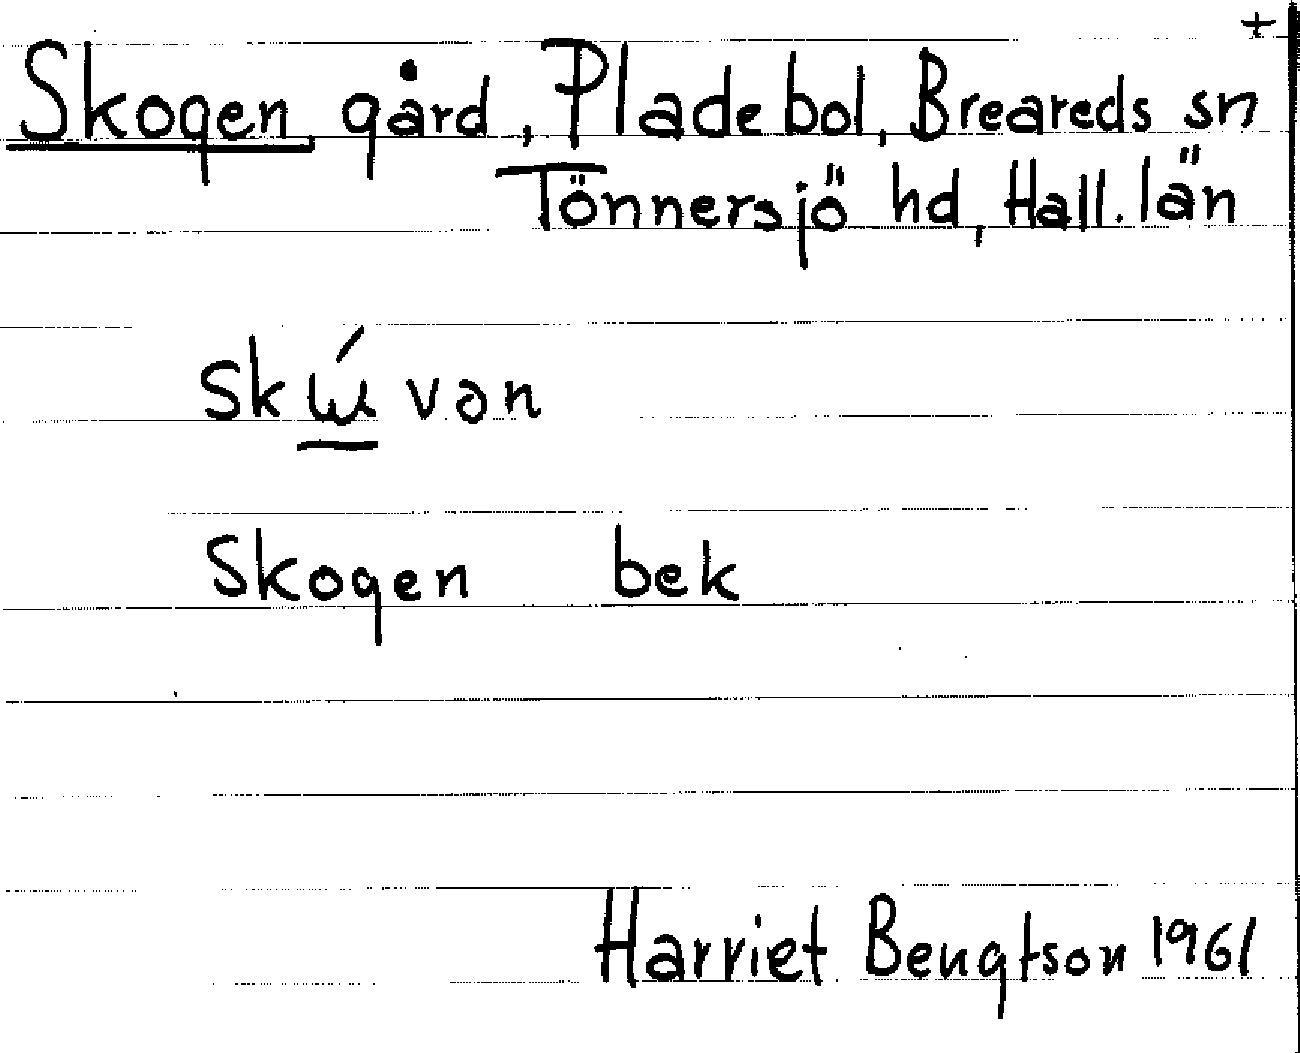 +
Skogen gård, Pladebol, Breareds sn
Tönnersjö hd, Hall. län
skɯ́vən
Skogen bek
Harriet Bengtson 1961